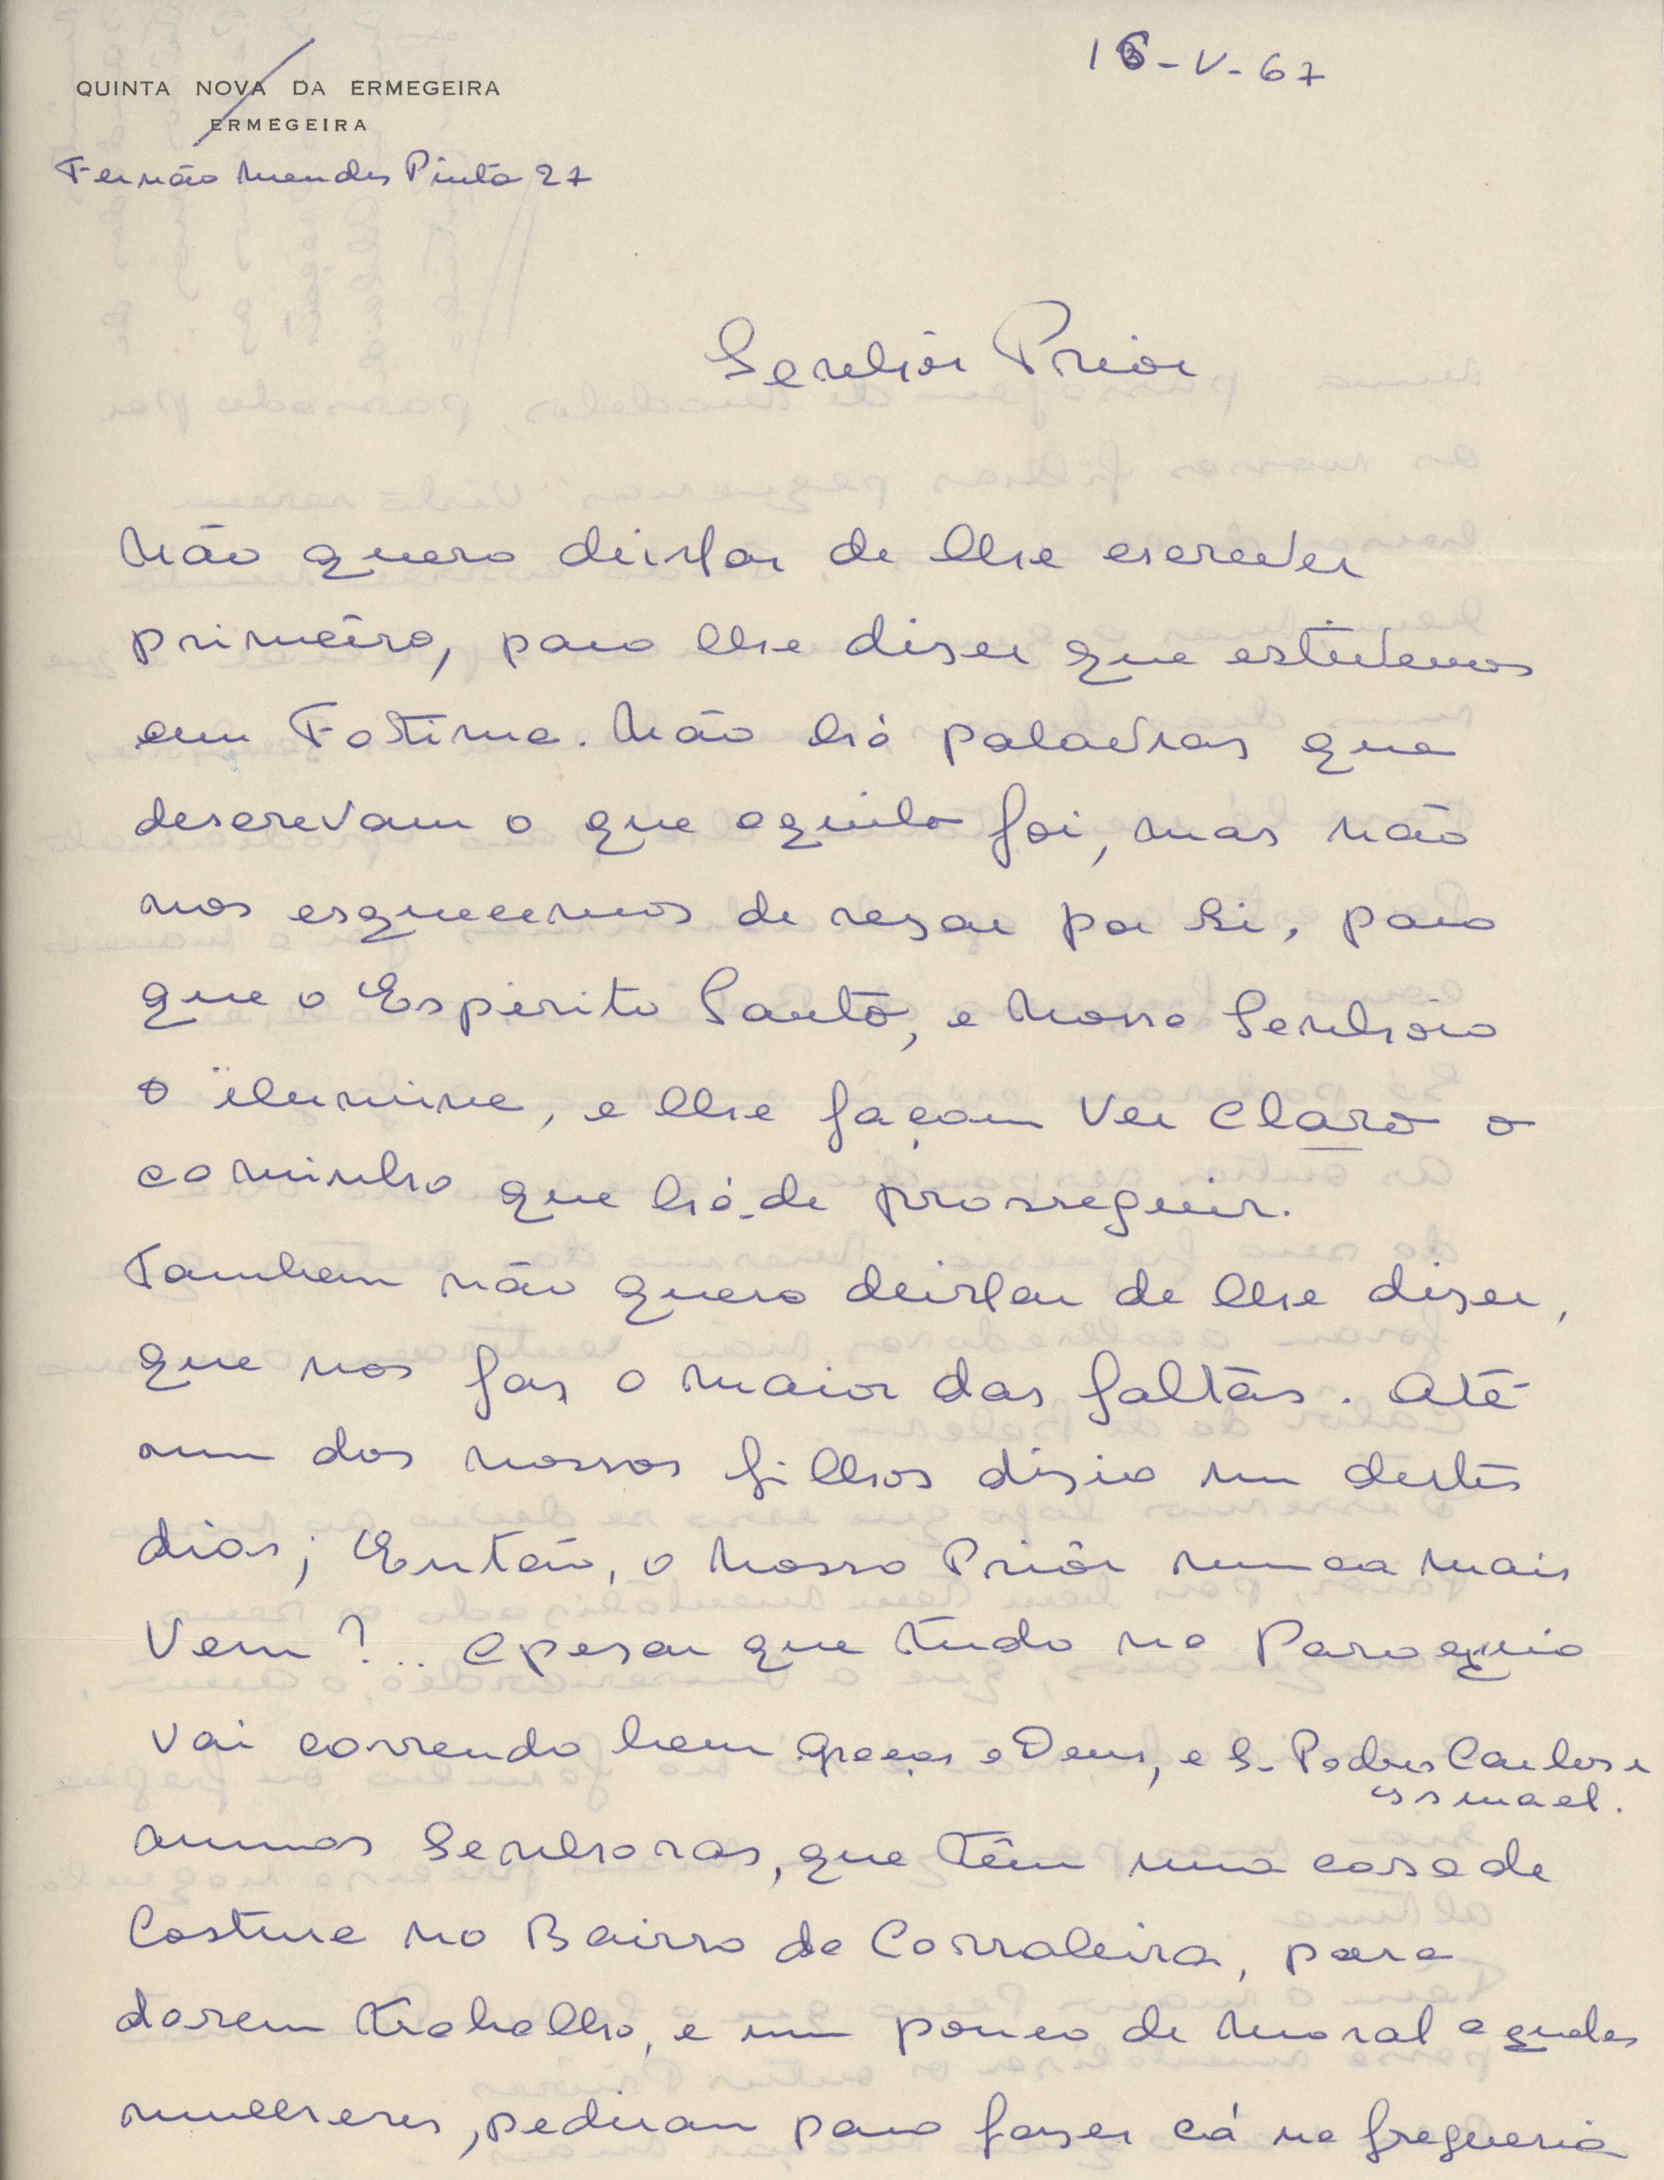 16-V-67
QUINTA NOVA DA ERMEGEIRA
ERMEGEIRA
Fernão Mendes Pinto 27
Senhôr Prior
Não quero deixar de lhe escrever
primeiro, para lhe diser que estivemos
em Fátima. Não há palavras que
descrevam o que aquilo foi, mas não
nos esquecemos de resar por Si, para
que o Espirito Santo, e Nossa Senhora
o ilumine, e lhe façam ver claro o
caminho que há-de prosseguir.
Tambem não quero deixar de lhe diser,
que nos fas a maior das faltas. Até
um dos nossos filhos disia um destes
dias; Então, o Nosso Priôr nunca mais
vem?... Apesar que tudo na Paroquia
vai correndo bem graças a Deus, e S. Padres Carlos e
Ismael.
Numas Senhoras, que têm uma casa de
Costura no Bairro da Curraleira, para
darem trabalho, e um pouco de moral aquelas
mulheres, pediram para faser cá na freguesia